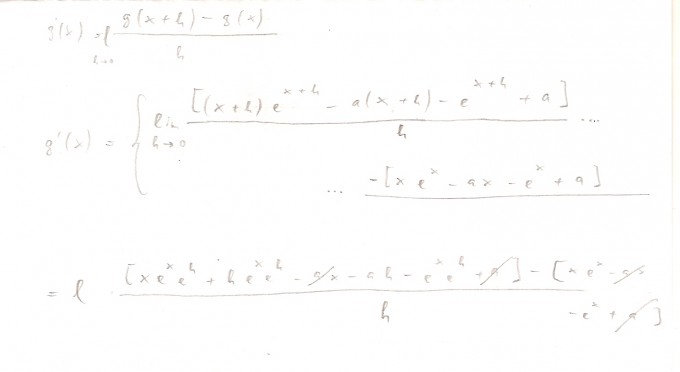 g'(x) = l h→0 g(x+h) - g(x) / h
g'(x) = { lim h→0 [(x+h) e^{x+h} - a(x+h) - e^{x+h} + a] / h ....
... -[x e^x - ax - e^x + a]
= l [x e^x e^h + h e^x e^h - ax - ah - e^x e^h + a] - [x e^x - ax
h - e^x + a]